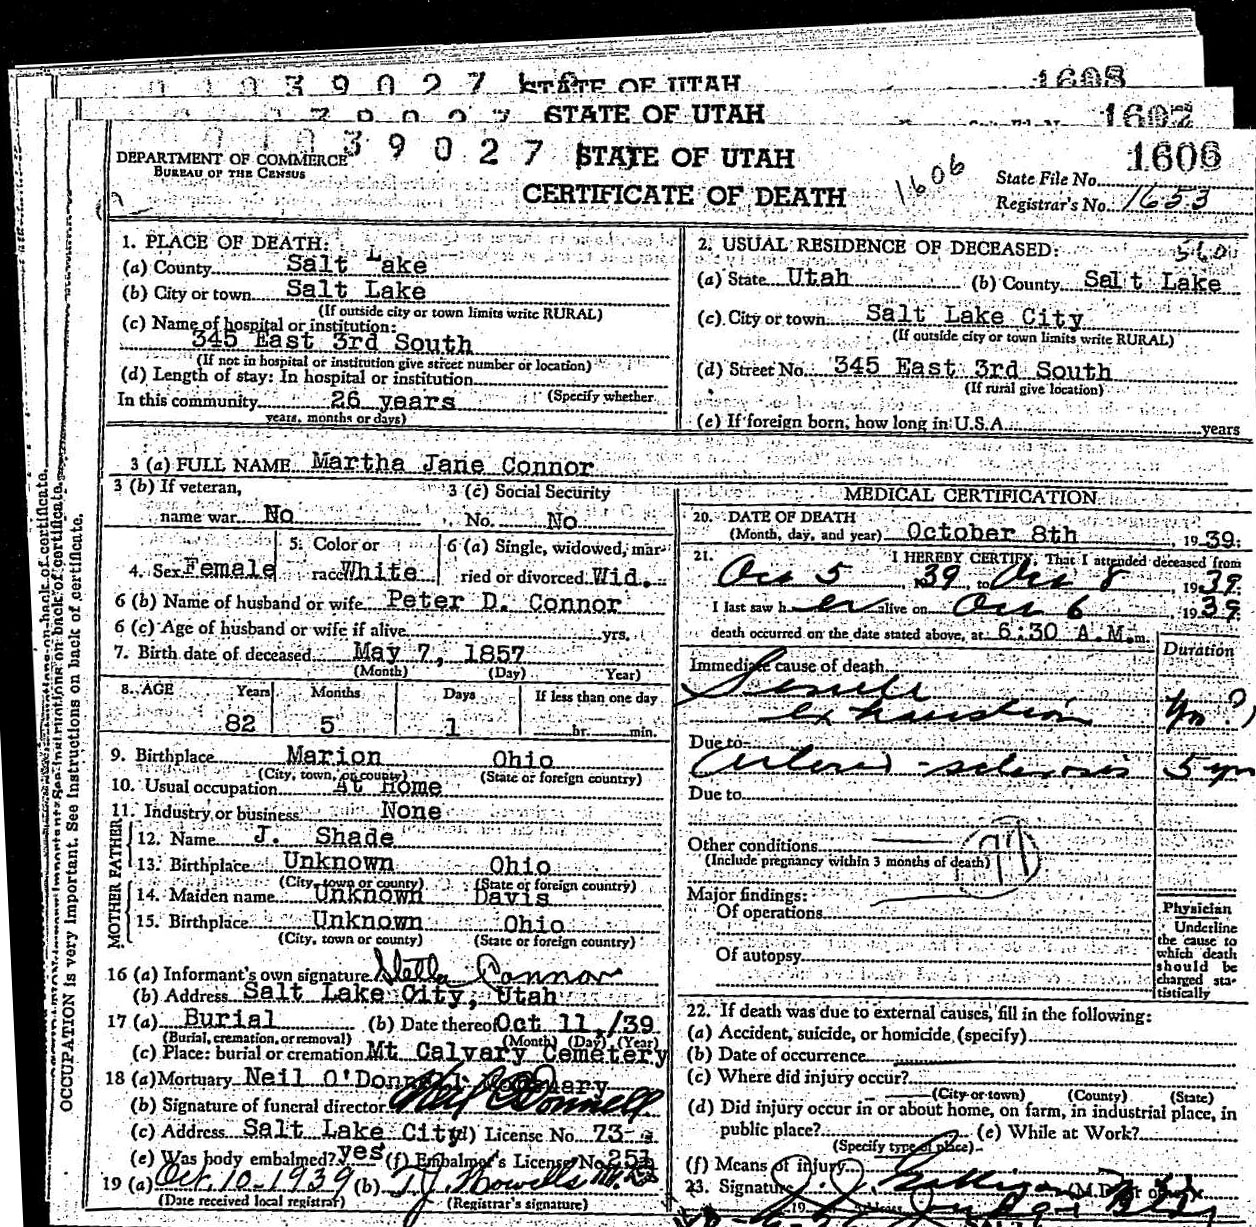 1 0 3 9 0 2 7 STATE OF UTAH 1608
7 9 0 2 7 STATE OF UTAH 1607
0 1 0 3 9 0 2 7 STATE OF UTAH 1606
DEPARTMENT OF COMMERCE
BUREAU OF THE CENSUS
CERTIFICATE OF DEATH
1606
State File No.
Registrar's No. 1653
1. PLACE OF DEATH:
(a) County Salt Lake
(b) City or town Salt Lake
(If outside city or town limits write RURAL)
(c) Name of hospital or institution:
345 East 3rd South
(If not in hospital or institution give street number or location)
(d) Length of stay: In hospital or institution
(Specify whether
In this community 26 years
years, months or days)
2. USUAL RESIDENCE OF DECEASED: 560
(a) State Utah (b) County Salt Lake
(c) City or town Salt Lake City
(If outside city or town limits write RURAL)
(d) Street No. 345 East 3rd South
(If rural give location)
(e) If foreign born, how long in U.S.A. years
3 (a) FULL NAME Martha Jane Connor
3 (b) If veteran,
name war No
3 (c) Social Security
No. No
4. Sex Female
5. Color or
race White
6 (a) Single, widowed, mar-
ried or divorced Wid.
6 (b) Name of husband or wife Peter D. Connor
6 (c) Age of husband or wife if alive yrs.
7. Birth date of deceased May 7, 1857
(Month) (Day) Year)
8. AGE Years Months Days If less than one day
82 5 1 hr. min.
9. Birthplace Marion Ohio
(City, town, or county) (State or foreign country)
10. Usual occupation At Home
11. Industry or business None
FATHER
12. Name J. Shade
13. Birthplace Unknown Ohio
(City, town or county) (State or foreign country)
MOTHER
14. Maiden name Unknown Davis
15. Birthplace Unknown Ohio
(City, town or county) (State or foreign country)
16 (a) Informant's own signature Stella Connor
(b) Address Salt Lake City, Utah
17 (a) Burial (b) Date thereof Oct 11,/39
(Burial, cremation, or removal) (Month) (Day) (Year)
(c) Place: burial or cremation Mt Calvary Cemetery
18 (a) Mortuary Neil O'Donnell Mortuary
(b) Signature of funeral director Neil O'Donnell
(c) Address Salt Lake City (d) License No. 73-
(e) Was body embalmed? yes (f) Embalmer's License No. 251
19 (a) Oct. 10-1939 (b) T.J. Howells M.D.
(Date received local registrar) (Registrar's signature)
MEDICAL CERTIFICATION
20. DATE OF DEATH
(Month, day, and year) October 8th, 1939.
21. I HEREBY CERTIFY, That I attended deceased from
Oct 5 1939 to Oct 8, 1939.
I last saw h er alive on Oct 6 1939
death occurred on the date stated above, at 6:30 A.M. m.
Duration
Immediate cause of death
Senile
exhaustion
Due to
Arterio-sclerosis 5 yrs
Due to
Other conditions
(Include pregnancy within 3 months of death)
97
Major findings:
Of operations
Of autopsy
Physician
Underline
the cause to
which death
should be
charged sta-
tistically
22. If death was due to external causes, fill in the following:
(a) Accident, suicide, or homicide (specify)
(b) Date of occurrence
(c) Where did injury occur?
(City or town) (County) (State)
(d) Did injury occur in or about home, on farm, in industrial place, in
public place? (e) While at Work?
(Specify type of place)
(f) Means of injury
23. Signature J. J. Galligan
OCCUPATION is very important. See instructions on back of certificate.